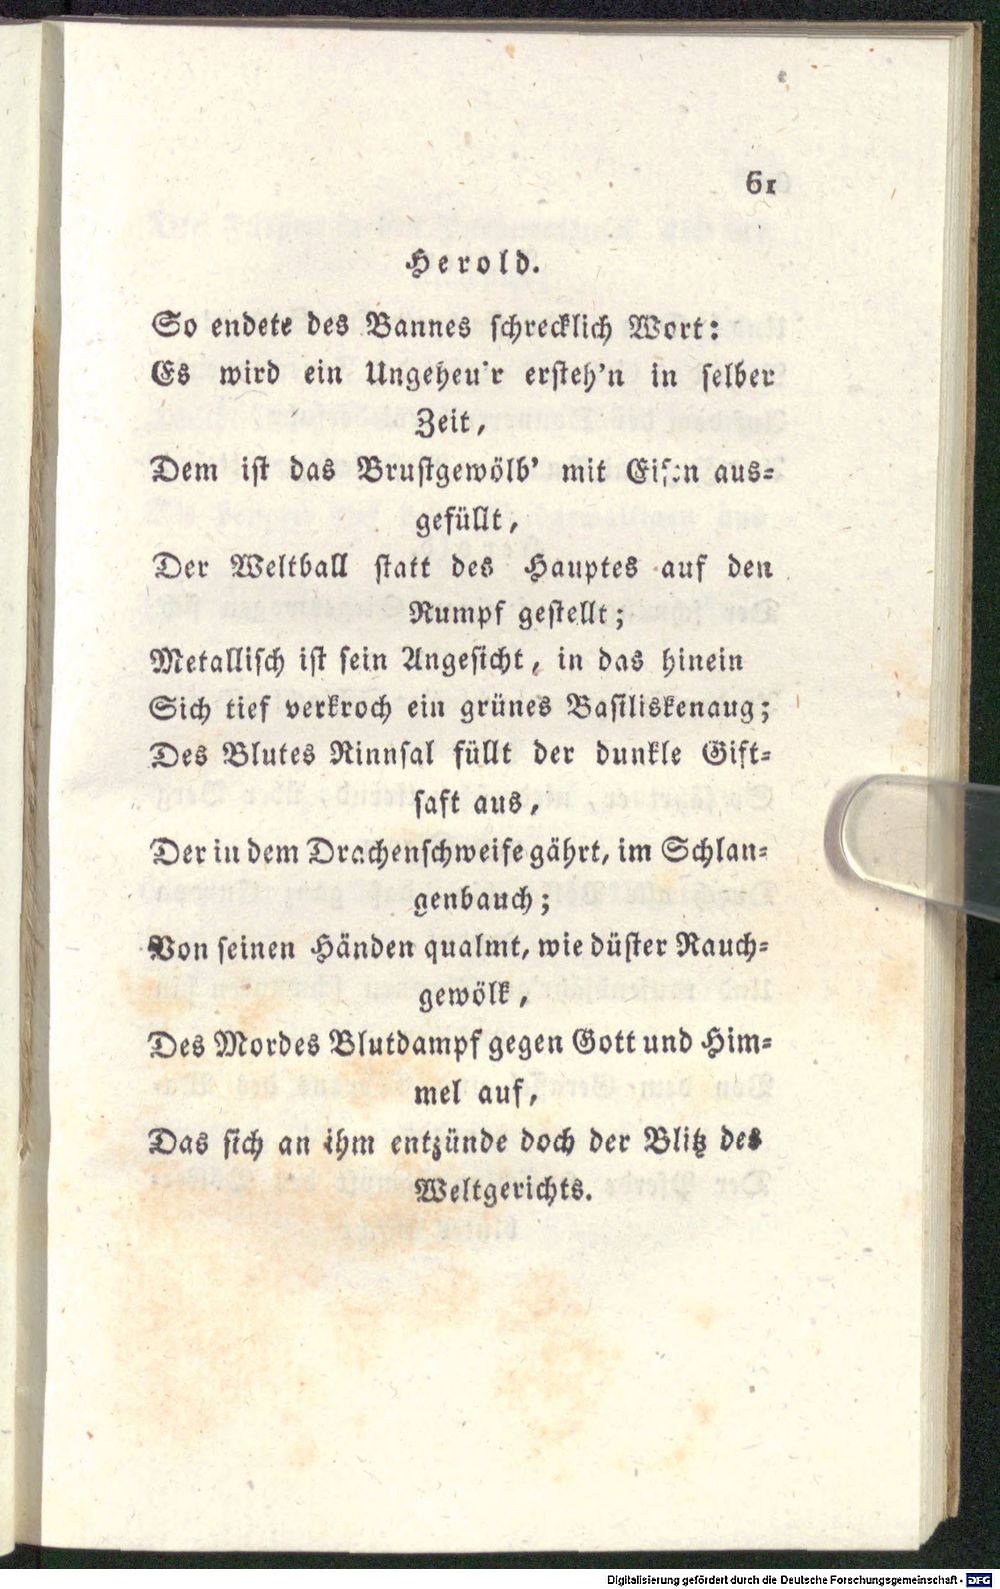 61
Herold.
So endete des Bannes schrecklich Wort:
Es wird ein Ungeheu'r ersteh'n in selber
Zeit,
Dem ist das Brustgewölb' mit Eisen aus-
gefüllt,
Der Weltball statt des Hauptes auf den
Rumpf gestellt;
Metallisch ist sein Angesicht, in das hinein
Sich tief verkroch ein grünes Basiliskenaug;
Des Blutes Rinnsal füllt der dunkle Gift-
saft aus,
Der in dem Drachenschweife gährt, im Schlan-
genbauch;
Von seinen Händen qualmt, wie düster Rauch-
gewölk,
Des Mordes Blutdampf gegen Gott und Him-
mel auf,
Das sich an ihm entzünde doch der Blitz des
Weltgerichts.
Digitalisierung gefördert durch die Deutsche Forschungsgemeinschaft - DFG